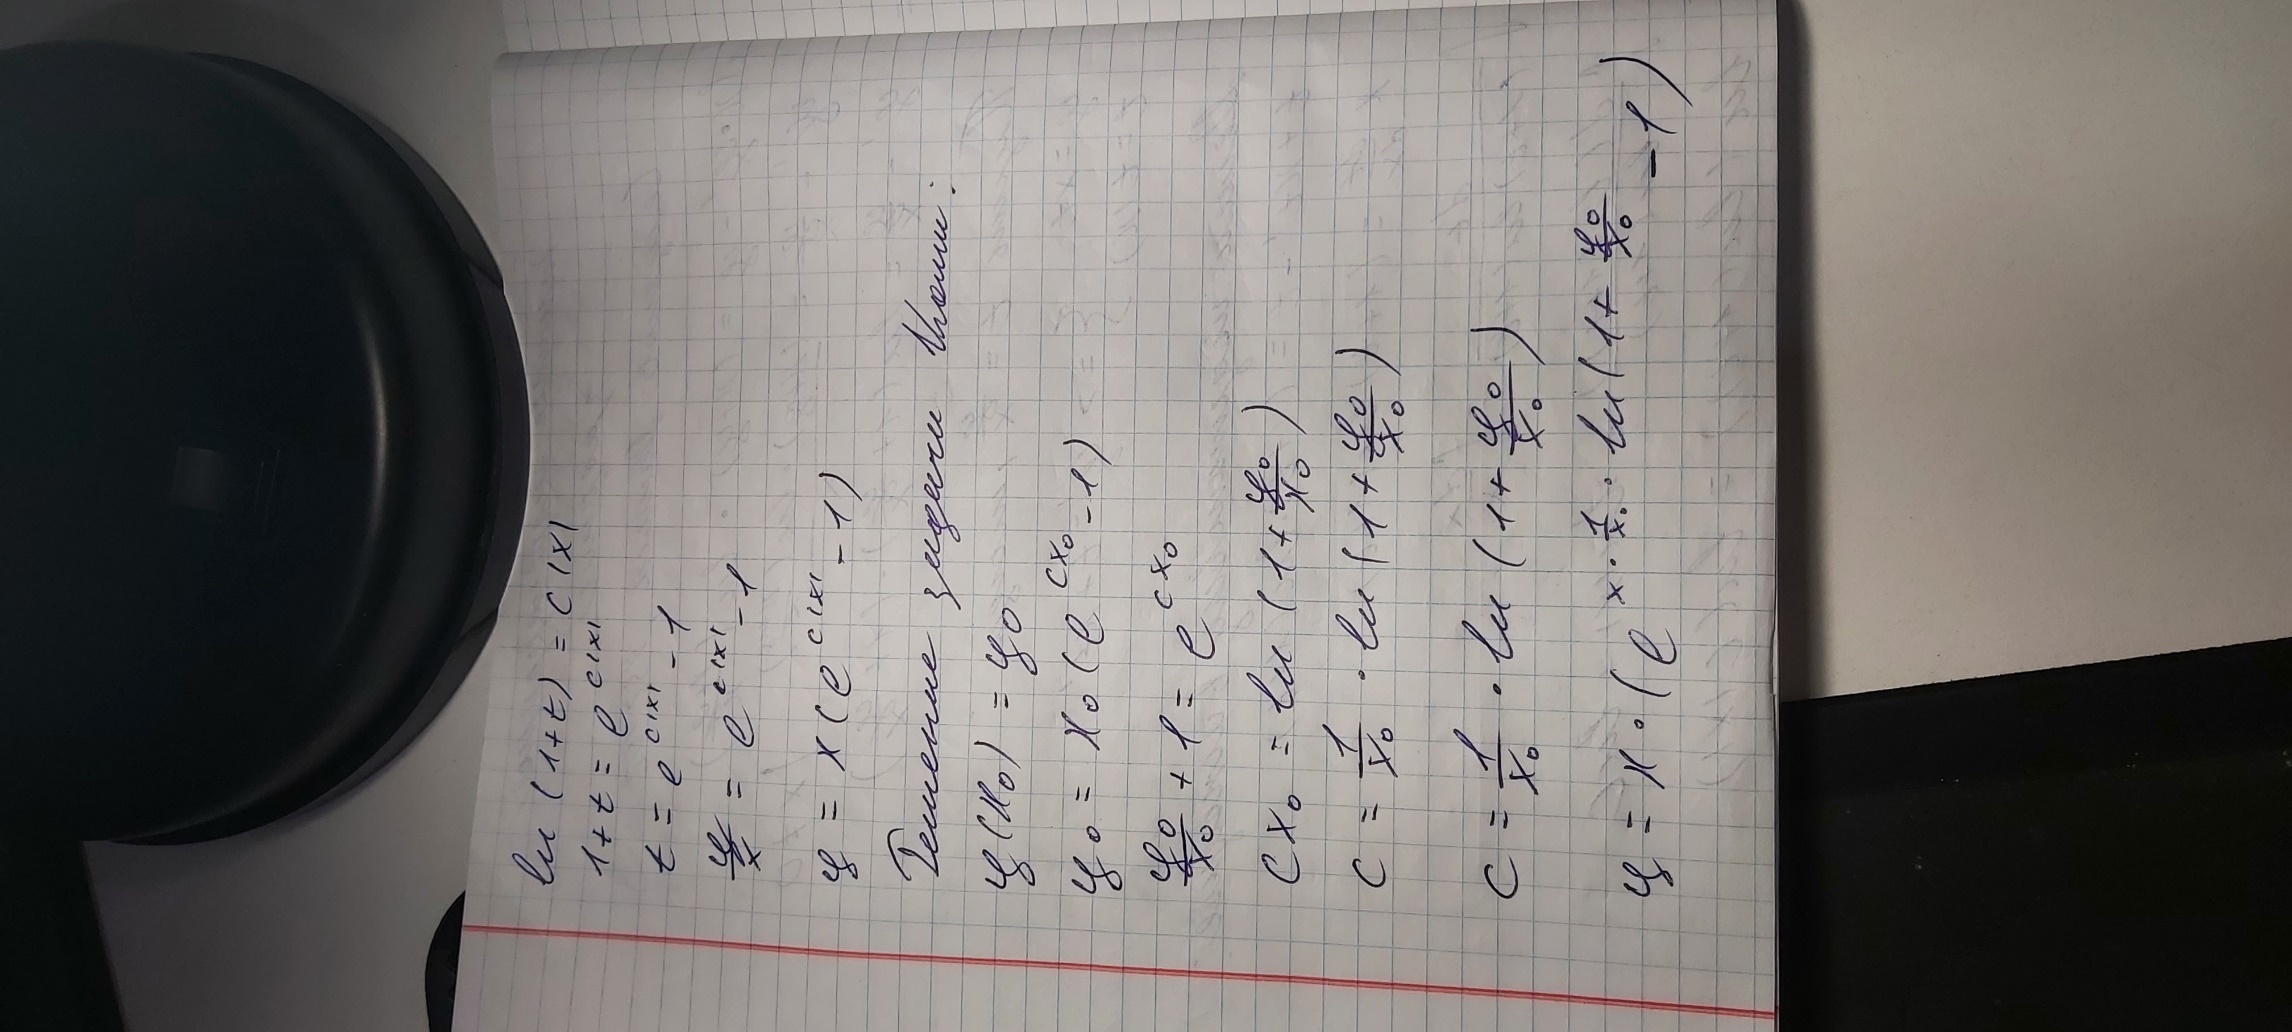 ln(1+t) = C|x|
1+t = e^{C|x|}
t = e^{C|x|} - 1
y/x = e^{C|x|} - 1
y = x(e^{C|x|} - 1)
Решение задачи Коши:
y(x₀) = y₀
y₀ = x₀(e^{Cx₀} - 1)
y₀/x₀ + 1 = e^{Cx₀}
Cx₀ = ln(1 + y₀/x₀)
C = 1/x₀ · ln(1 + y₀/x₀)
C = 1/x₀ · ln(1 + y₀/x₀)
y = x · (e^{x · 1/x₀ · ln(1 + y₀/x₀} - 1)